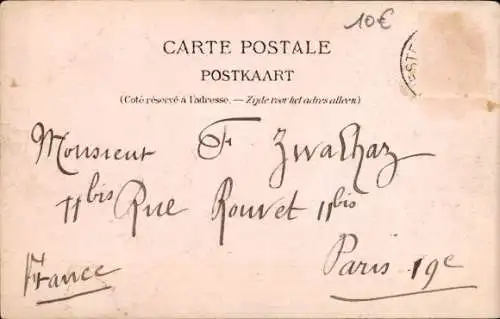 10€
CARTE POSTALE
POSTKAART
(Côté réservé à l'adresse. — Zijde voor het adres alleen)
Monsieur F. Zwahhaz
11 bis Rue Rouvet 11 bis
Paris 19e
France